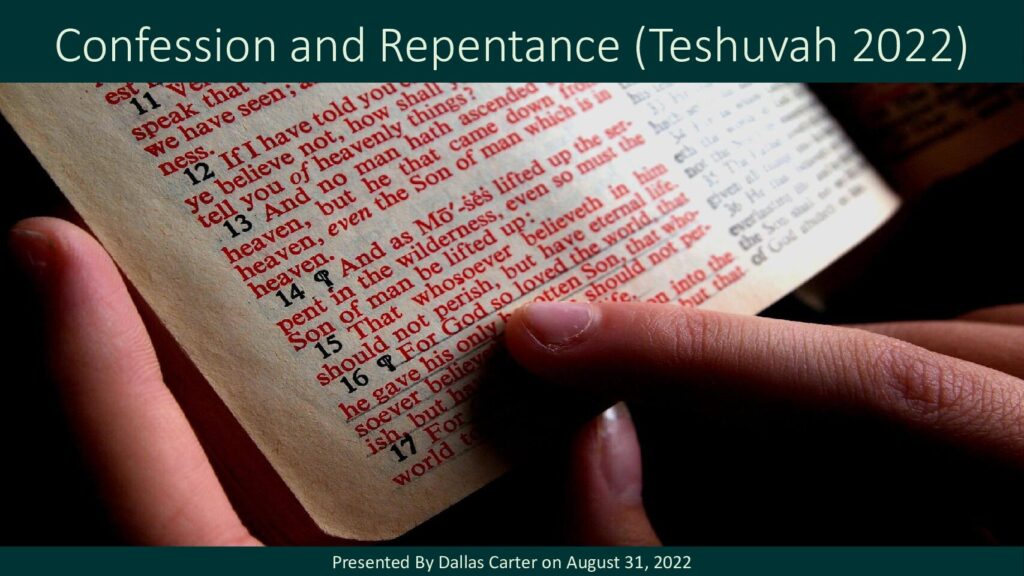 Confession and Repentance (Teshuvah 2022)
est
11 Ve
speak that
we have seen; a
ness.
12 If I have told you e
ye believe not, how shall y
tell you of heavenly things?
13 And no man hath ascended
heaven, but he that came down from
heaven, even the Son of man which is in
heaven.
14 ¶ And as Mō′-ṡēṡ lifted up the ser-
pent in the wilderness, even so must the
Son of man be lifted up:
15 That whosoever believeth in him
should not perish, but have eternal life.
16 ¶ For God so loved the world, that
he gave his only otten Son, that who-
soever believe should not per-
ish, but ha life.
17 For n into the
world to but that
the Son shall
of God
Presented By Dallas Carter on August 31, 2022